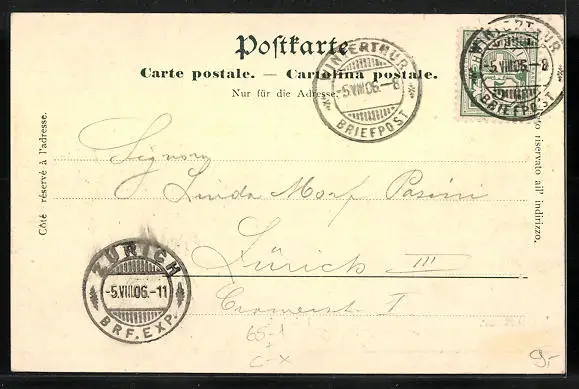 Postkarte
Carte postale. — Cartolina postale.
Nur für die Adresse.
WINTERTHUR
-5.VIII.06.-8
BRIEFPOST
WINTERTHUR
-5.VIII.06.-8
BRIEFPOST
Côté réservé à l'adresse.
riservato all' indirizzo.
Signora
Linda Morf Pasini
Zürich III
ZÜRICH
-5.VIII.06.-11
BRF.EXP.
65-1
C-X
9.-